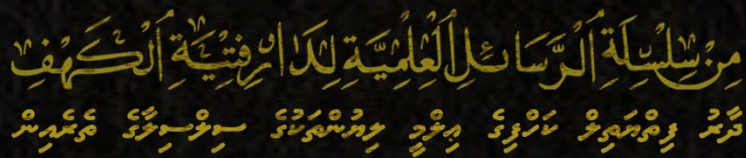 مِنْ سِلْسِلَةِ الرَّسَائِلِ الْعِلْمِيَّةِ لِدَارِ فِتْيَةِ الْكَهْفِ
ދާރު ފިތްޔަތިލް ކަހްފިގެ ޢިލްމީ ލިޔުންތަކުގެ ސިލްސިލާގެ ތެރެއިން